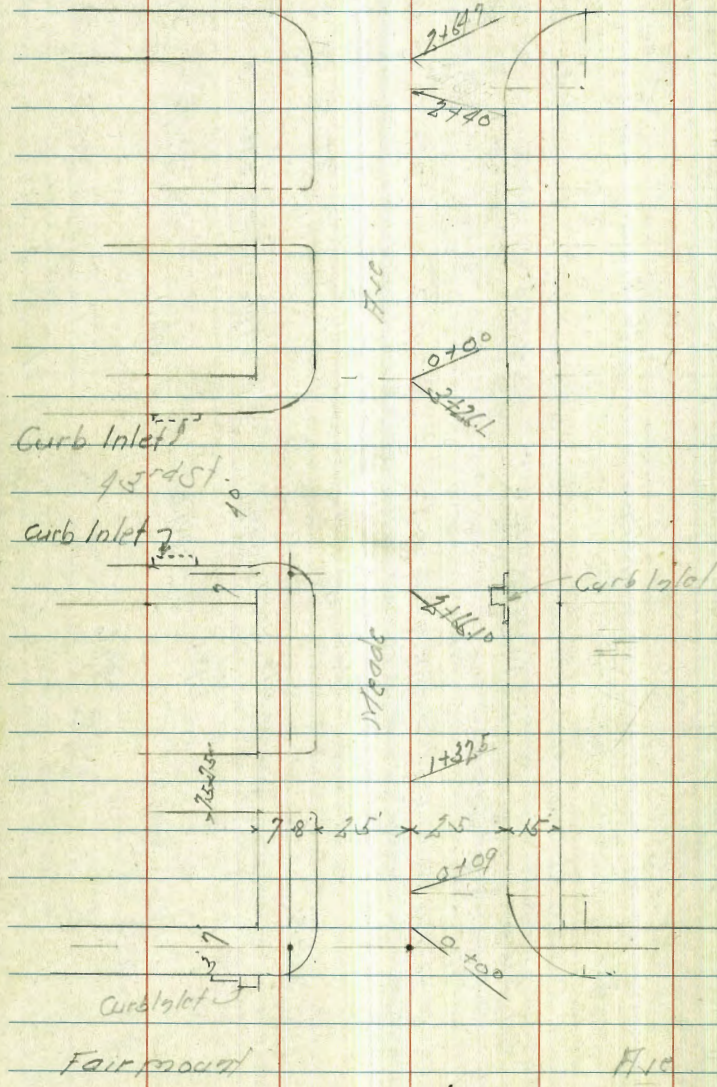 2+647
2+40
Ave
0+00
3+26.1
Curb Inlet
43rd St.
40
Curb Inlet
7
Curb Inlet
2+66.10
Meade
1+32.5
7 8 25 25 15
0+09
7
3
0+00
Curb Inlet
Fairmount Ave